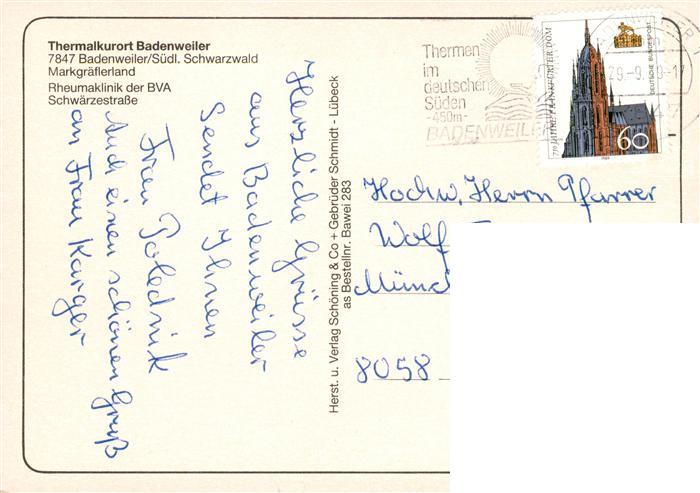 Thermalkurort Badenweiler
7847 Badenweiler/Südl. Schwarzwald
Markgräflerland
Rheumaklinik der BVA
Schwärzestraße
Herzliche Grüsse
aus Badenweiler
Sendet Ihnen
Frau Polednik
Auch einen schönen Gruß
an Frau Karger
Herst. u. Verlag Schöning & Co + Gebrüder Schmidt - Lübeck
as Bestellnr. Bawei 283
Thermen
im
deutschen
Süden
-450m-
BADENWEILER
29.-9.
-17
750 JAHRE FRANKFURTER DOM
DEUTSCHE BUNDESPOST
60
1989
Hochw. Herrn Pfarrer
Wolf
Münc
8058